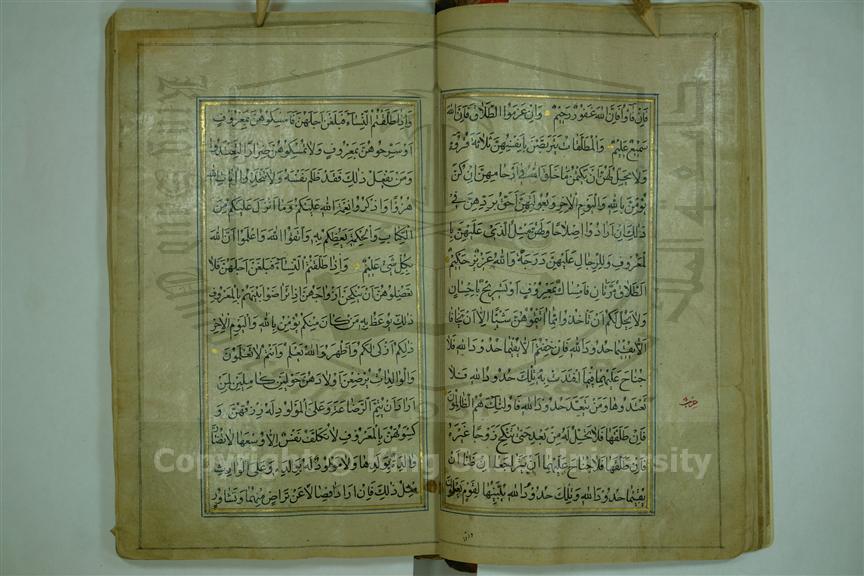 فَإِنْ فَاؤُا فَإِنَّ اللهَ غَفُورٌ رَحِيمٌ وَإِنْ عَزَمُوا الطَّلَاقَ فَإِنَّ اللهَ
سَمِيعٌ عَلِيمٌ وَالْمُطَلَّقَاتُ يَتَرَبَّصْنَ بِأَنْفُسِهِنَّ ثَلَاثَةَ قُرُوءٍ
وَلَا يَحِلُّ لَهُنَّ أَنْ يَكْتُمْنَ مَا خَلَقَ اللهُ فِي أَرْحَامِهِنَّ إِنْ كُنَّ
يُؤْمِنَّ بِاللهِ وَالْيَوْمِ الْآخِرِ وَبُعُولَتُهُنَّ أَحَقُّ بِرَدِّهِنَّ فِي
ذَلِكَ إِنْ أَرَادُوا إِصْلَاحًا وَلَهُنَّ مِثْلُ الَّذِي عَلَيْهِنَّ بِا
لْمَعْرُوفِ وَلِلرِّجَالِ عَلَيْهِنَّ دَرَجَةٌ وَاللهُ عَزِيزٌ حَكِيمٌ
الطَّلَاقُ مَرَّتَانِ فَإِمْسَاكٌ بِمَعْرُوفٍ أَوْ تَسْرِيحٌ بِإِحْسَانٍ
وَلَا يَحِلُّ لَكُمْ أَنْ تَأْخُذُوا مِمَّا آتَيْتُمُوهُنَّ شَيْئًا إِلَّا أَنْ يَخَافَا
أَلَّا يُقِيمَا حُدُودَ اللهِ فَإِنْ خِفْتُمْ أَلَّا يُقِيمَا حُدُودَ اللهِ فَلَا
جُنَاحَ عَلَيْهِمَا فِيمَا افْتَدَتْ بِهِ تِلْكَ حُدُودُ اللهِ فَلَا
تَعْتَدُوهَا وَمَنْ يَتَعَدَّ حُدُودَ اللهِ فَأُولَئِكَ هُمُ الظَّالِمُونَ
فَإِنْ طَلَّقَهَا فَلَا تَحِلُّ لَهُ مِنْ بَعْدُ حَتَّى تَنْكِحَ زَوْجًا غَيْرَهُ
فَإِنْ طَلَّقَهَا فَلَا جُنَاحَ عَلَيْهِمَا أَنْ يَتَرَاجَعَا إِنْ ظَنَّا أَنْ
يُقِيمَا حُدُودَ اللهِ وَتِلْكَ حُدُودُ اللهِ يُبَيِّنُهَا لِقَوْمٍ يَعْلَمُونَ
وَإِذَا طَلَّقْتُمُ النِّسَاءَ فَبَلَغْنَ أَجَلَهُنَّ فَأَمْسِكُوهُنَّ بِمَعْرُوفٍ
أَوْ سَرِّحُوهُنَّ بِمَعْرُوفٍ وَلَا تُمْسِكُوهُنَّ ضِرَارًا لِتَعْتَدُوا
وَمَنْ يَفْعَلْ ذَلِكَ فَقَدْ ظَلَمَ نَفْسَهُ وَلَا تَتَّخِذُوا آيَاتِ اللهِ
هُزُوًا وَاذْكُرُوا نِعْمَةَ اللهِ عَلَيْكُمْ وَمَا أَنْزَلَ عَلَيْكُمْ مِنَ
الْكِتَابِ وَالْحِكْمَةِ يَعِظُكُمْ بِهِ وَاتَّقُوا اللهَ وَاعْلَمُوا أَنَّ اللهَ
بِكُلِّ شَيْءٍ عَلِيمٌ وَإِذَا طَلَّقْتُمُ النِّسَاءَ فَبَلَغْنَ أَجَلَهُنَّ فَلَا
تَعْضُلُوهُنَّ أَنْ يَنْكِحْنَ أَزْوَاجَهُنَّ إِذَا تَرَاضَوْا بَيْنَهُمْ بِالْمَعْرُوفِ
ذَلِكَ يُوعَظُ بِهِ مَنْ كَانَ مِنْكُمْ يُؤْمِنُ بِاللهِ وَالْيَوْمِ الْآخِرِ
ذَلِكُمْ أَزْكَى لَكُمْ وَأَطْهَرُ وَاللهُ يَعْلَمُ وَأَنْتُمْ لَا تَعْلَمُونَ
وَالْوَالِدَاتُ يُرْضِعْنَ أَوْلَادَهُنَّ حَوْلَيْنِ كَامِلَيْنِ لِمَنْ
أَرَادَ أَنْ يُتِمَّ الرَّضَاعَةَ وَعَلَى الْمَوْلُودِ لَهُ رِزْقُهُنَّ وَ
كِسْوَتُهُنَّ بِالْمَعْرُوفِ لَا تُكَلَّفُ نَفْسٌ إِلَّا وُسْعَهَا لَا تُضَارَّ
وَالِدَةٌ بِوَلَدِهَا وَلَا مَوْلُودٌ لَهُ بِوَلَدِهِ وَعَلَى الْوَارِثِ
مِثْلُ ذَلِكَ فَإِنْ أَرَادَا فِصَالًا عَنْ تَرَاضٍ مِنْهُمَا وَتَشَاوُرٍ
Copyright © King Saud University